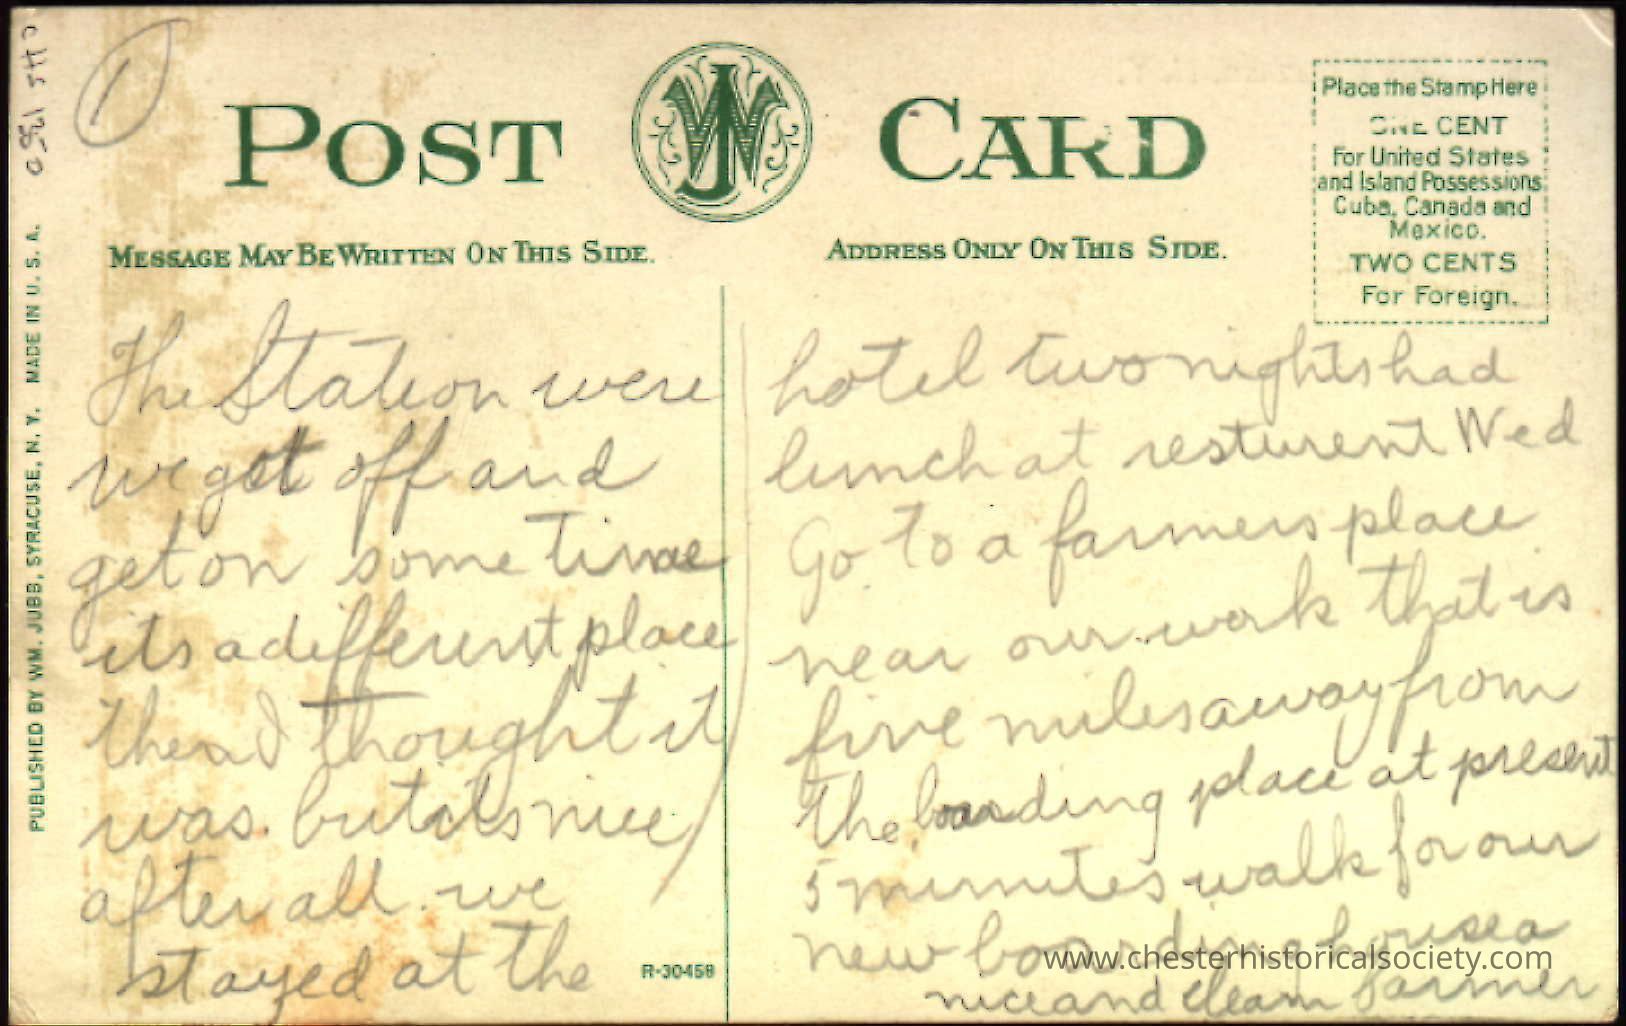 CHS 1980
1
POST CARD
MESSAGE MAY BE WRITTEN ON THIS SIDE.
ADDRESS ONLY ON THIS SIDE.
Place the Stamp Here
ONE CENT
For United States
and Island Possessions
Cuba, Canada and
Mexico.
TWO CENTS
For Foreign.
PUBLISHED BY WM. JUBB, SYRACUSE, N. Y. MADE IN U. S. A.
The Station were
we got off and
get on some time
its a different place
then I thought it
was. but its nice
after all. we
stayed at the
R-30458
hotel two nights had
lunch at resturent Wed
Go to a farmers place
near our work that is
five miles away from
the boarding place at present
5 minutes walk for our
new boarding house a
nice and clean farmer
www.chesterhistoricalsociety.com